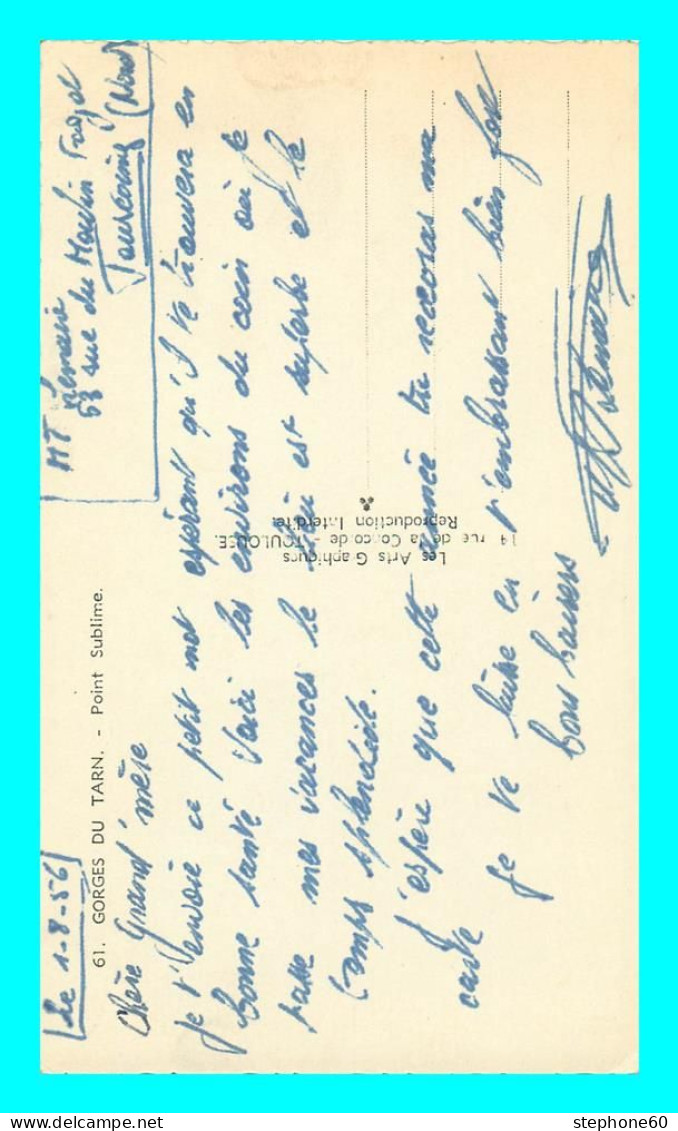 Le 1-8-56
MT Lemaire
53 rue du Moulin Fagot
Tourcoing (Nord)
61. GORGES DU TARN. - Point Sublime.
Chère Grand'mère
Je t'envoie ce petit mot espérant qu'il te trouvera en
bonne santé Voici les environs du coin où je
passe mes vacances le est superbe et le
temps splendide.
J'espère que cette année tu recevras ma
carte
Je te laisse en t'embrassant bien fort
bons baisers
Les Arts Graphiques
14 rue de la Concorde - TOULOUSE.
Reproduction Interdite.
stephone60